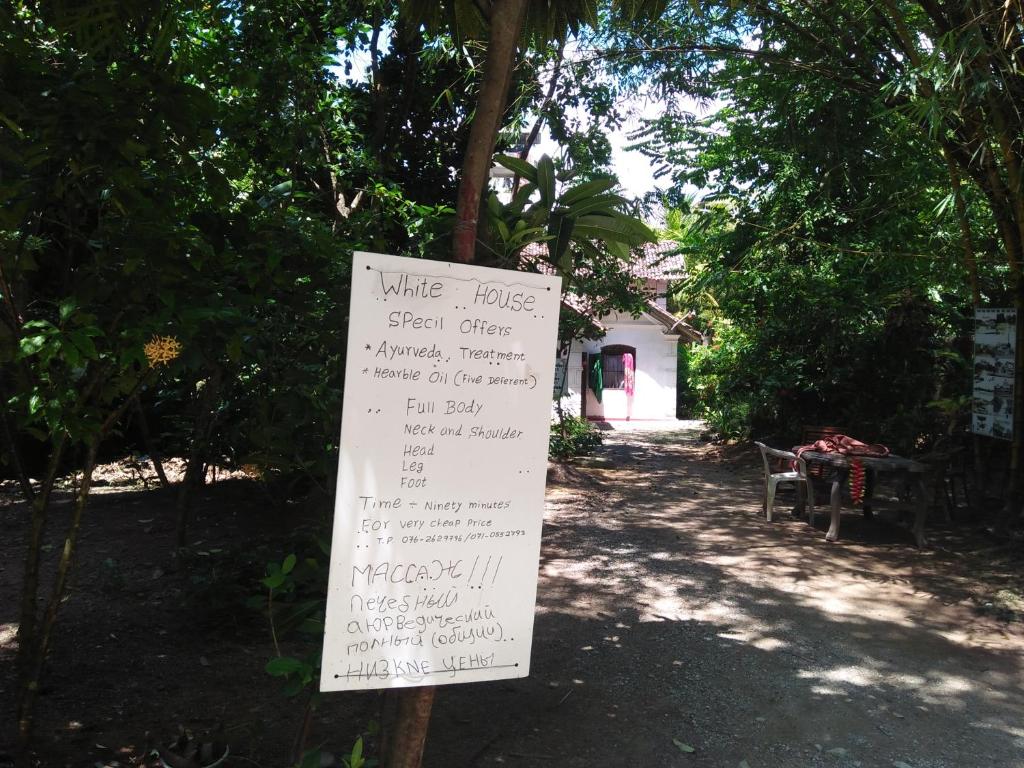 White House
SPecil Offers
* Ayurveda Treatment
* Hearble Oil (Five Deferent)
Full Body
Neck and Shoulder
Head
Leg
Foot
Time - Ninety minutes
For very cheap Price
T.P. 076-2629776/071-0552793
МАССАЖ!!!
аЮРВедический
полный (общий)
НИЗКNЕ ЦЕНЫ